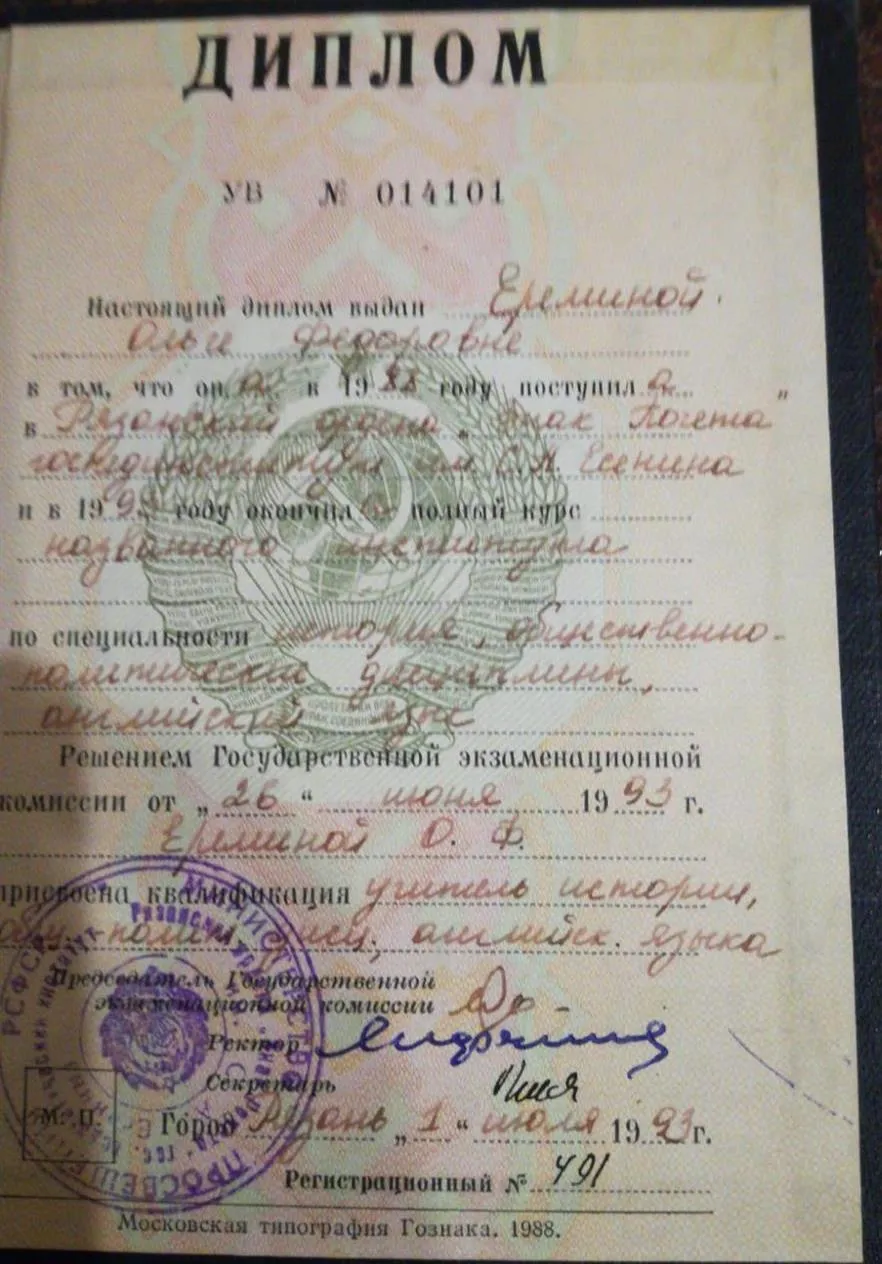 ДИПЛОМ
УВ № 014101
Настоящий диплом выдан Ереминой
Ольге Федоровне
в том, что он а в 1988 году поступил а
в Рязанский ордена „Знак Почета"
госпединститут им С.А. Есенина
и в 1993 году окончил а полный курс
названного института
по специальности история, общественно-
политические дисциплины,
английский язык
Решением Государственной экзаменационной
комиссии от „26“ июня 1993 г.
Ереминой О. Ф.
присвоена квалификация учитель истории,
общ.-полит. дисц., английск. языка
Председатель Государственной
экзаменационной комиссии
Ректор
Секретарь
М. П.
Город Рязань „1“ июля 1993г.
Регистрационный № 491
Московская типография Гознака. 1988.